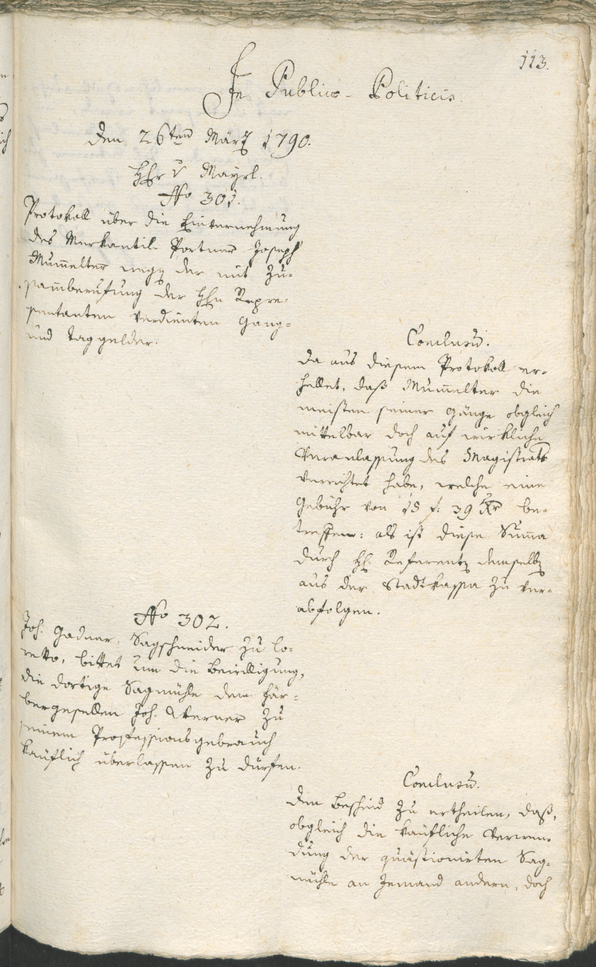 113.
In Publico-Politicis.
den 26ten März 1790.
Hr v Mayrl.
No 301.
Protokoll über die Einvernehmung
des Merkantil Portner Joseph
Mum̅elter wegen der mit Zu-
samberufung der Hhn Repre-
sentanten verdienten Gang-
und Taggelder.
Conclusu̅.
Da aus diesem Protokoll er-
hellet, daß Mum̅elter die
meisten seiner Gänge obgleich
mittelbar doch auf wirkliche
Veranlassung des Magistrats
verrichtet habe, welche eine
Gebühr von 15 f. 39 Kr be-
treffen: als ist diese Summa
durch H. Referenten demselben
aus der Stadtkassa zu ver-
abfolgen.
No 302.
Joh. Gadner, Sagschneider zu Lo-
retto, bittet um die Bewilligung,
die dortige Sagmühle dem Fär-
bergesellen Joh. Werner zu
seinem Professionsgebrauch
käuflich überlassen zu dürfen.
Conclusu̅.
Den Bescheid zu ertheilen, daß,
obgleich die käufliche Verwen-
dung der quästionirten Sag-
mühle an Jemand andern, doch